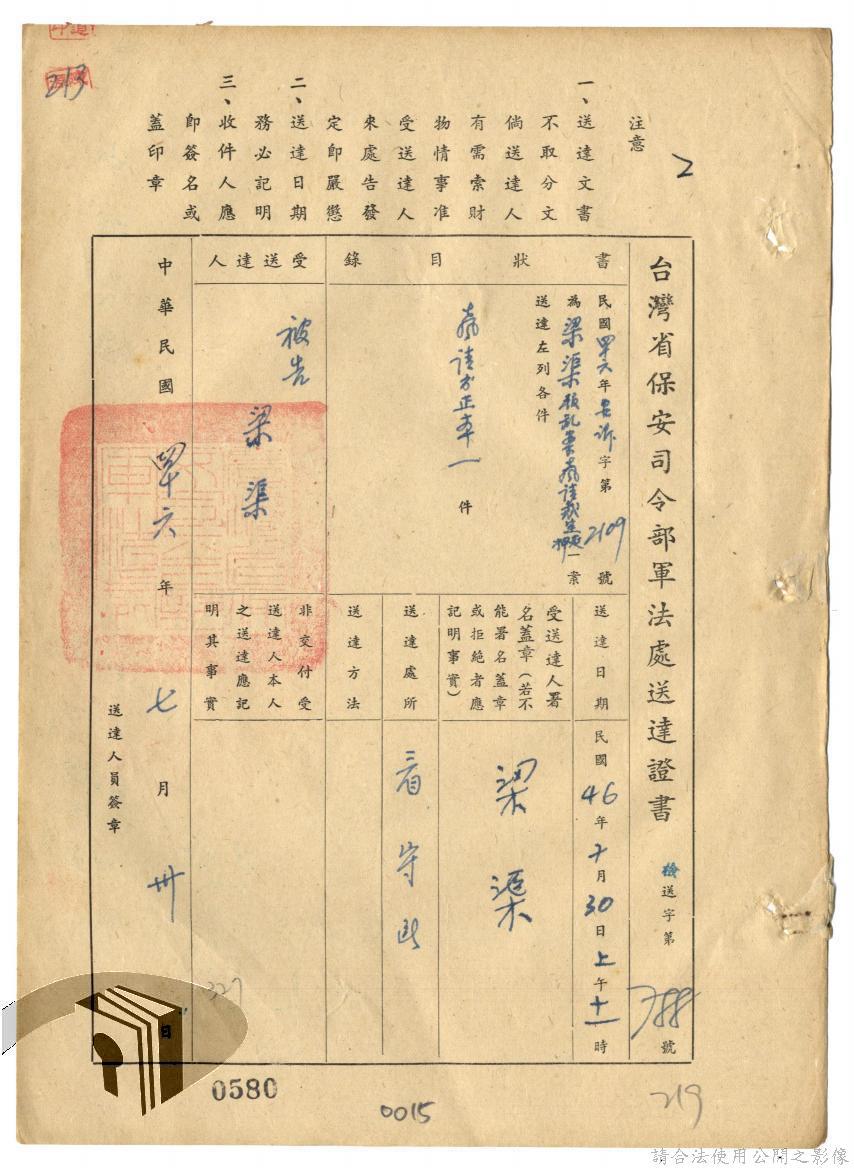 213
2
注意
一、送達文書
不取分文
倘送達人
有需索財
物情事准
受送達人
來處告發
定即嚴懲
二、送達日期
務必記明
三、收件人應
即簽名或
蓋印章
台灣省保安司令部軍法處送達證書
送字第788號
書狀目錄
民國四十六年安訴字第2109號
為梁渠叛乱案聲請裁定延押一案
送達左列各件
聲請書正本一件
受送達人
被告 梁渠
送達日期
民國46年7月30日上午十一時
受送達人署
名蓋章(若不
能署名蓋章
或拒絕者應
記明事實)
梁渠
送達處所
看守所
送達方法
非交付受
送達人本人
之送達應記
明其事實
中華民國四十六年七月卅日
送達人員簽章
327
0580
0015
219
請合法使用公開之影像